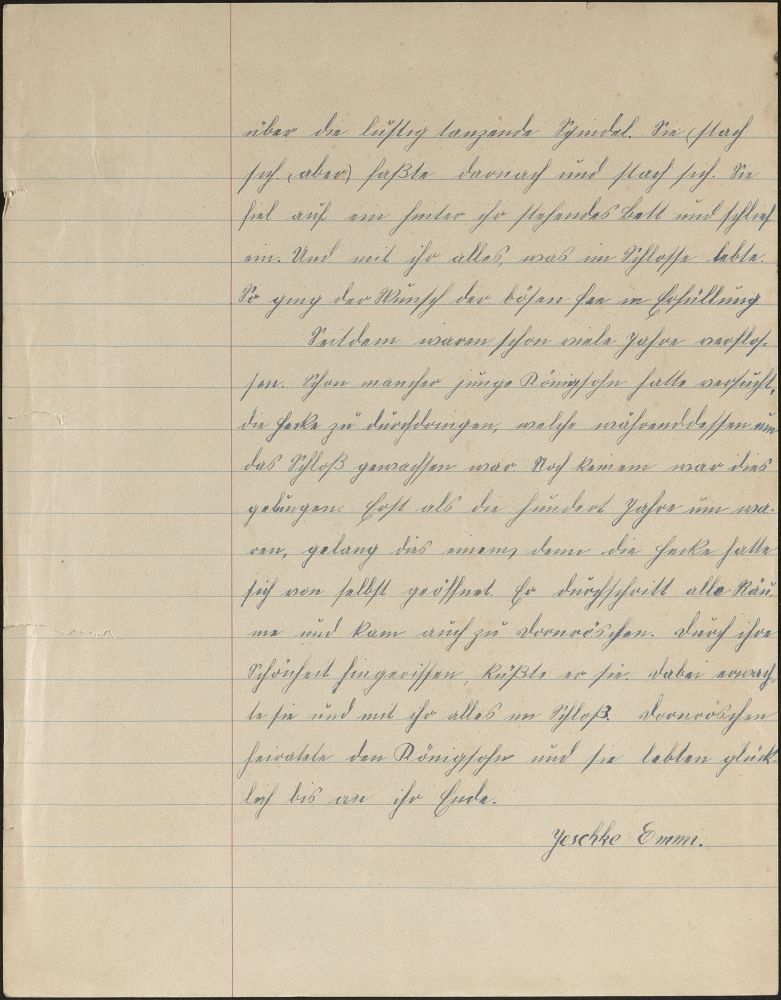 über die lustig tanzende Spindel. Sie (stach
sich (aber) faßte darnach und stach sich. Sie
fiel auf ein hinter ihr stehendes Bett und schlief
ein. Und mit ihr alles, was im Schlosse lebte.
So ging der Wunsch der bösen Fee in Erfüllung.
Seitdem waren schon viele Jahre verflos-
sen. Schon mancher junge Königsohn hatte versucht,
die Hecke zu durchdringen, welche währenddessen um
das Schloß gewachsen war. Noch keinem war dies
gelungen. Erst als die hundert Jahre um wa-
ren, gelang dies einem, denn die Hecke hatte
sich von selbst geöffnet. Er durchschritt alle Räu-
me und kam auch zu Dornröschen. Durch ihre
Schönheit hingerissen, küßte er sie. Dabei erwach-
te sie und mit ihr alles im Schloß. Dornröschen
heiratete den Königsohn und sie lebten glück-
lich bis an ihr Ende.
Jeschke Emmi.